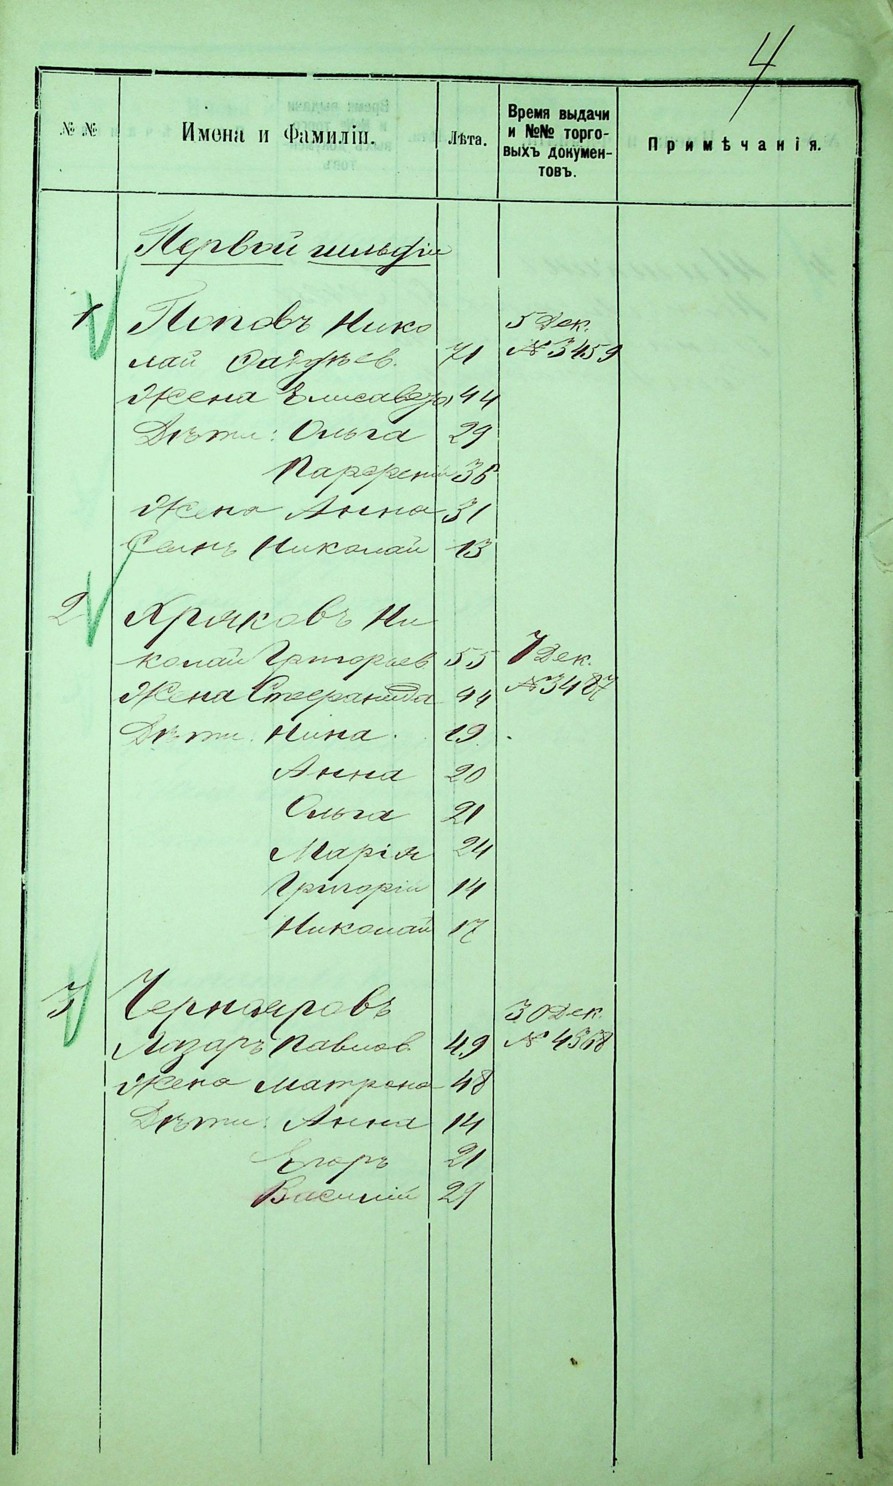 4
№ №
Имена и Фамиліи.
Лѣта.
Время выдачи
и №№ торго-
выхъ докумен-
товъ.
Примѣчанія.
Первой гильдіи
1 Поповъ Нико 5 Дек.
лай 71 № 3459
Жена Елисавета 44
Дѣти: Ольга 29
Парфеній 36
Жена Анна 31
Сынъ Николай 13
2 Хряковъ Ни
колай Григорьев 55 7 Дек.
Жена Стефанида 44 № 3487
Дѣти: Нина. 19
Анна 20
Ольга 21
Марія 24
Григорій 14
Николай 17
3 Чернояровъ 30 Дек.
Лазарь Павлов. 49 № 4368
Жена Матрена 48
Дѣти: Анна 14
Егоръ 21
Василій 29